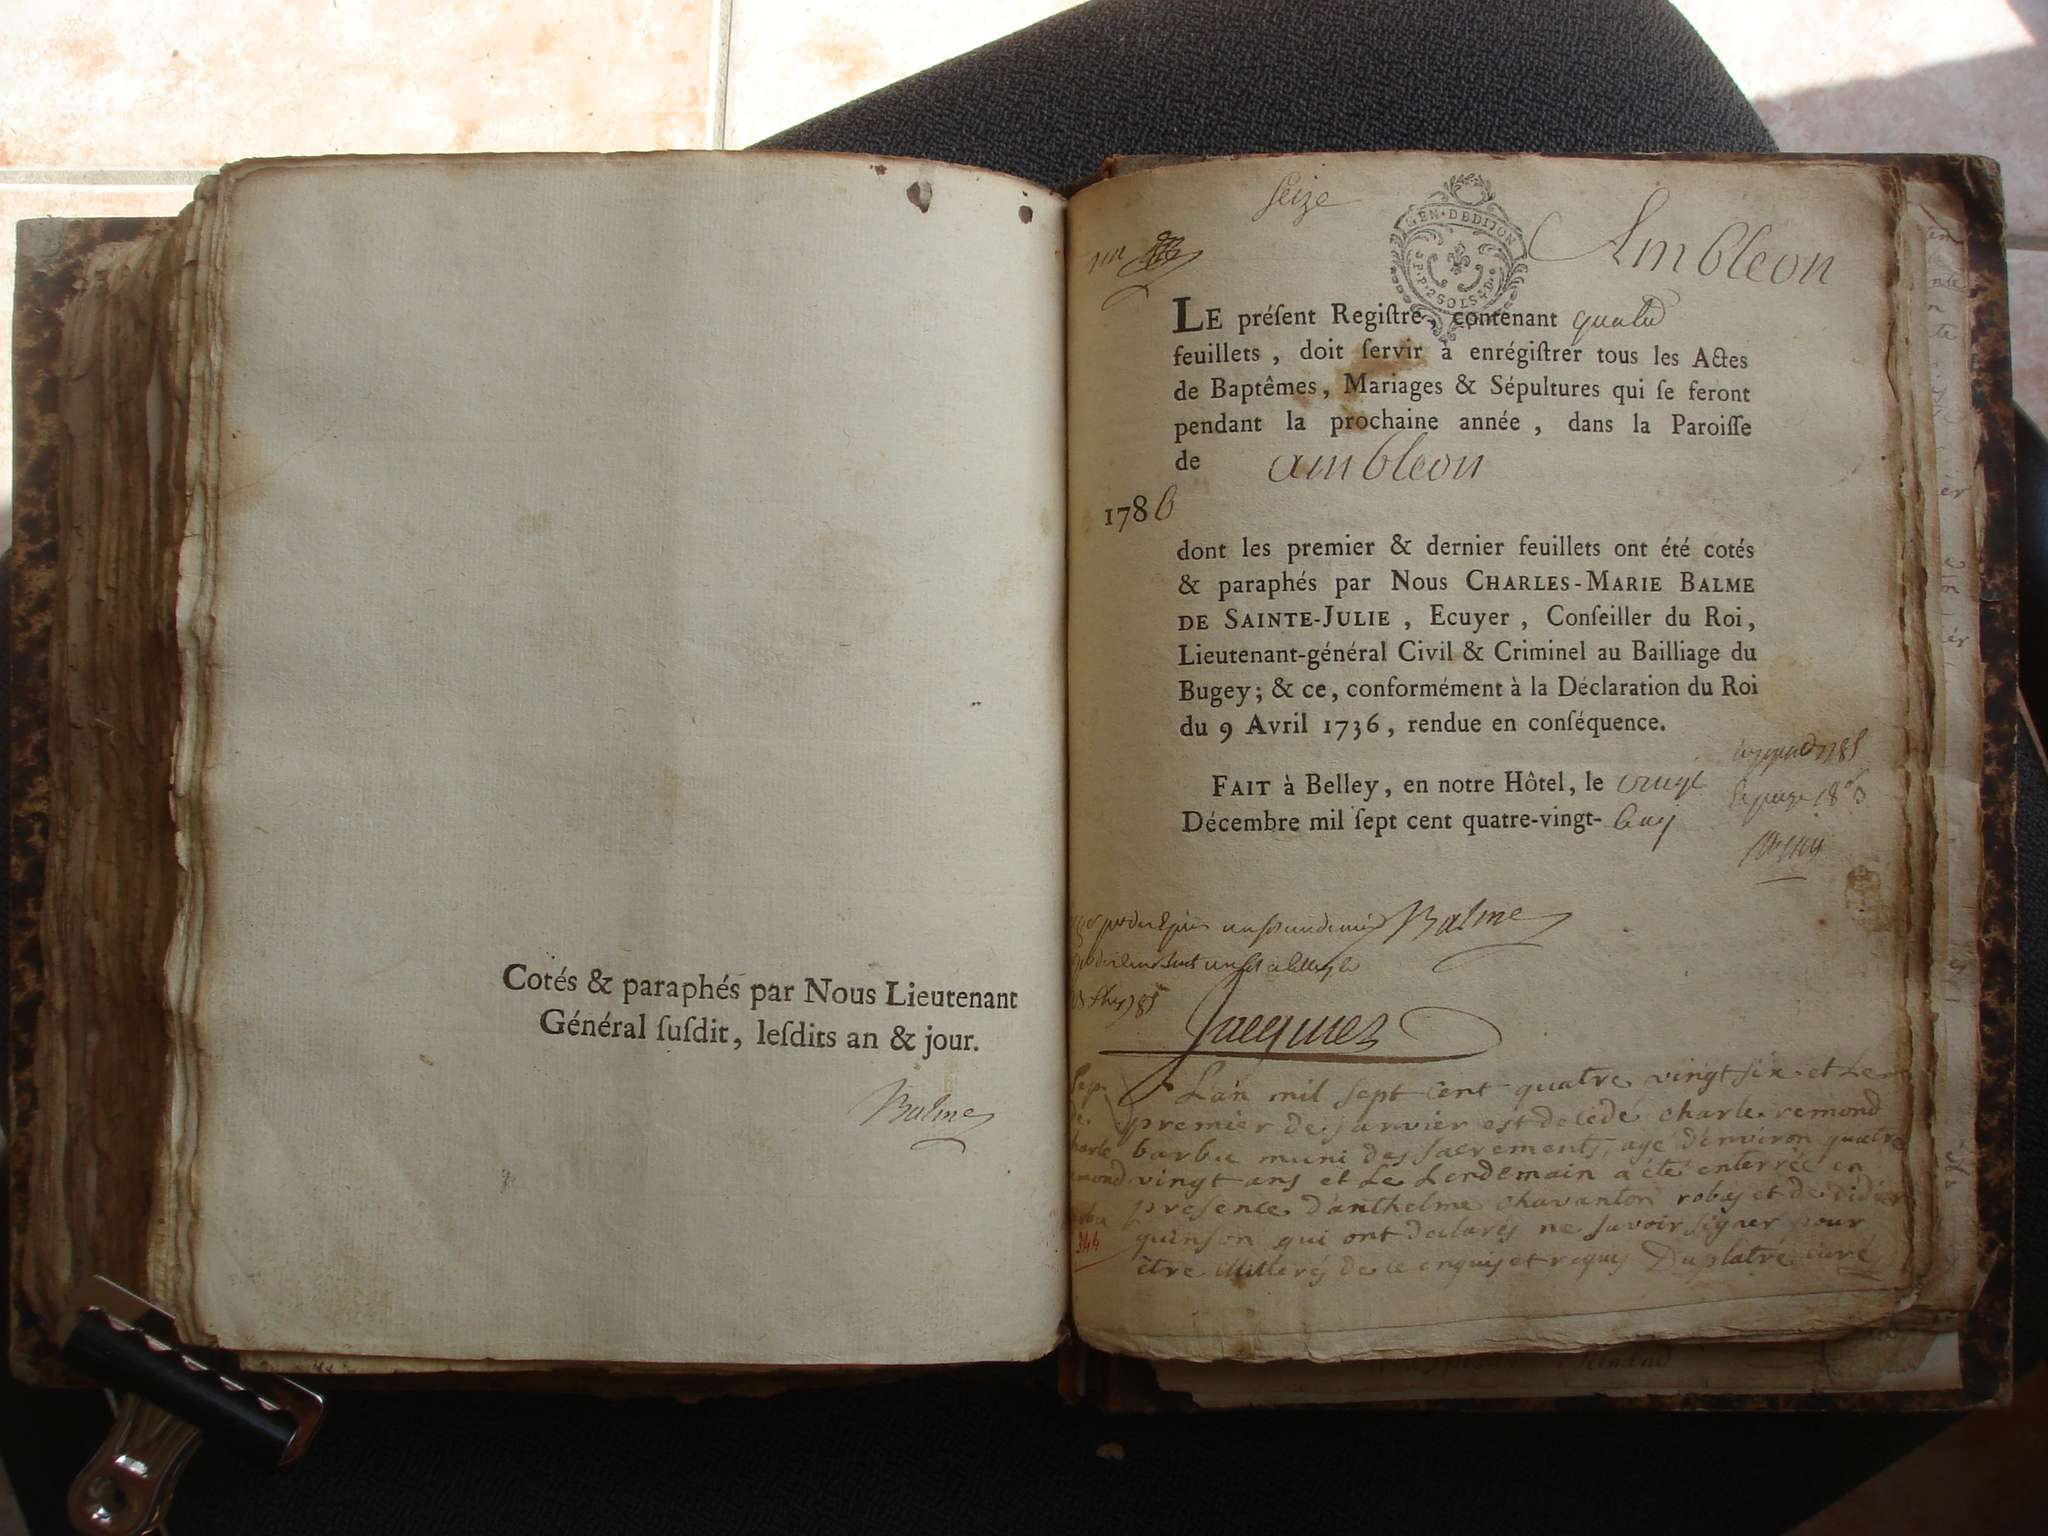 Cotés & paraphés par Nous Lieutenant
Général ſuſdit, leſdits an & jour.
Balme
Seize
Ambleon
GEN·DE DIJON
2 SOLS
LE préſent Regiſtre, contenant quatre
feuillets, doit ſervir à enrégiſtrer tous les Actes
de Baptêmes, Mariages & Sépultures qui ſe feront
pendant la prochaine année, dans la Paroiſſe
de ambleon
1786
dont les premier & dernier feuillets ont été cotés
& paraphés par Nous CHARLES-MARIE BALME
DE SAINTE-JULIE, Ecuyer, Conſeiller du Roi,
Lieutenant-général Civil & Criminel au Bailliage du
Bugey; & ce, conformément à la Déclaration du Roi
du 9 Avril 1736, rendue en conſéquence.
FAIT à Belley, en notre Hôtel, le
Décembre mil ſept cent quatre-vingt-
Balme
Jacquier
L'an mil sept cent quatre vingt six et Le
premier de janvier est decedé charle remond
barbu muni des sacrements, agé d'environ quatre
vingt ans et Le Lendemain a été enterrée en
presence d'anthelme chavanton robas et de didier
quinson qui ont declarés ne savoir signer pour
être illiterés de ce enquis et requis Duplatre curé
Sep.
de
charle
remond
barbu
344